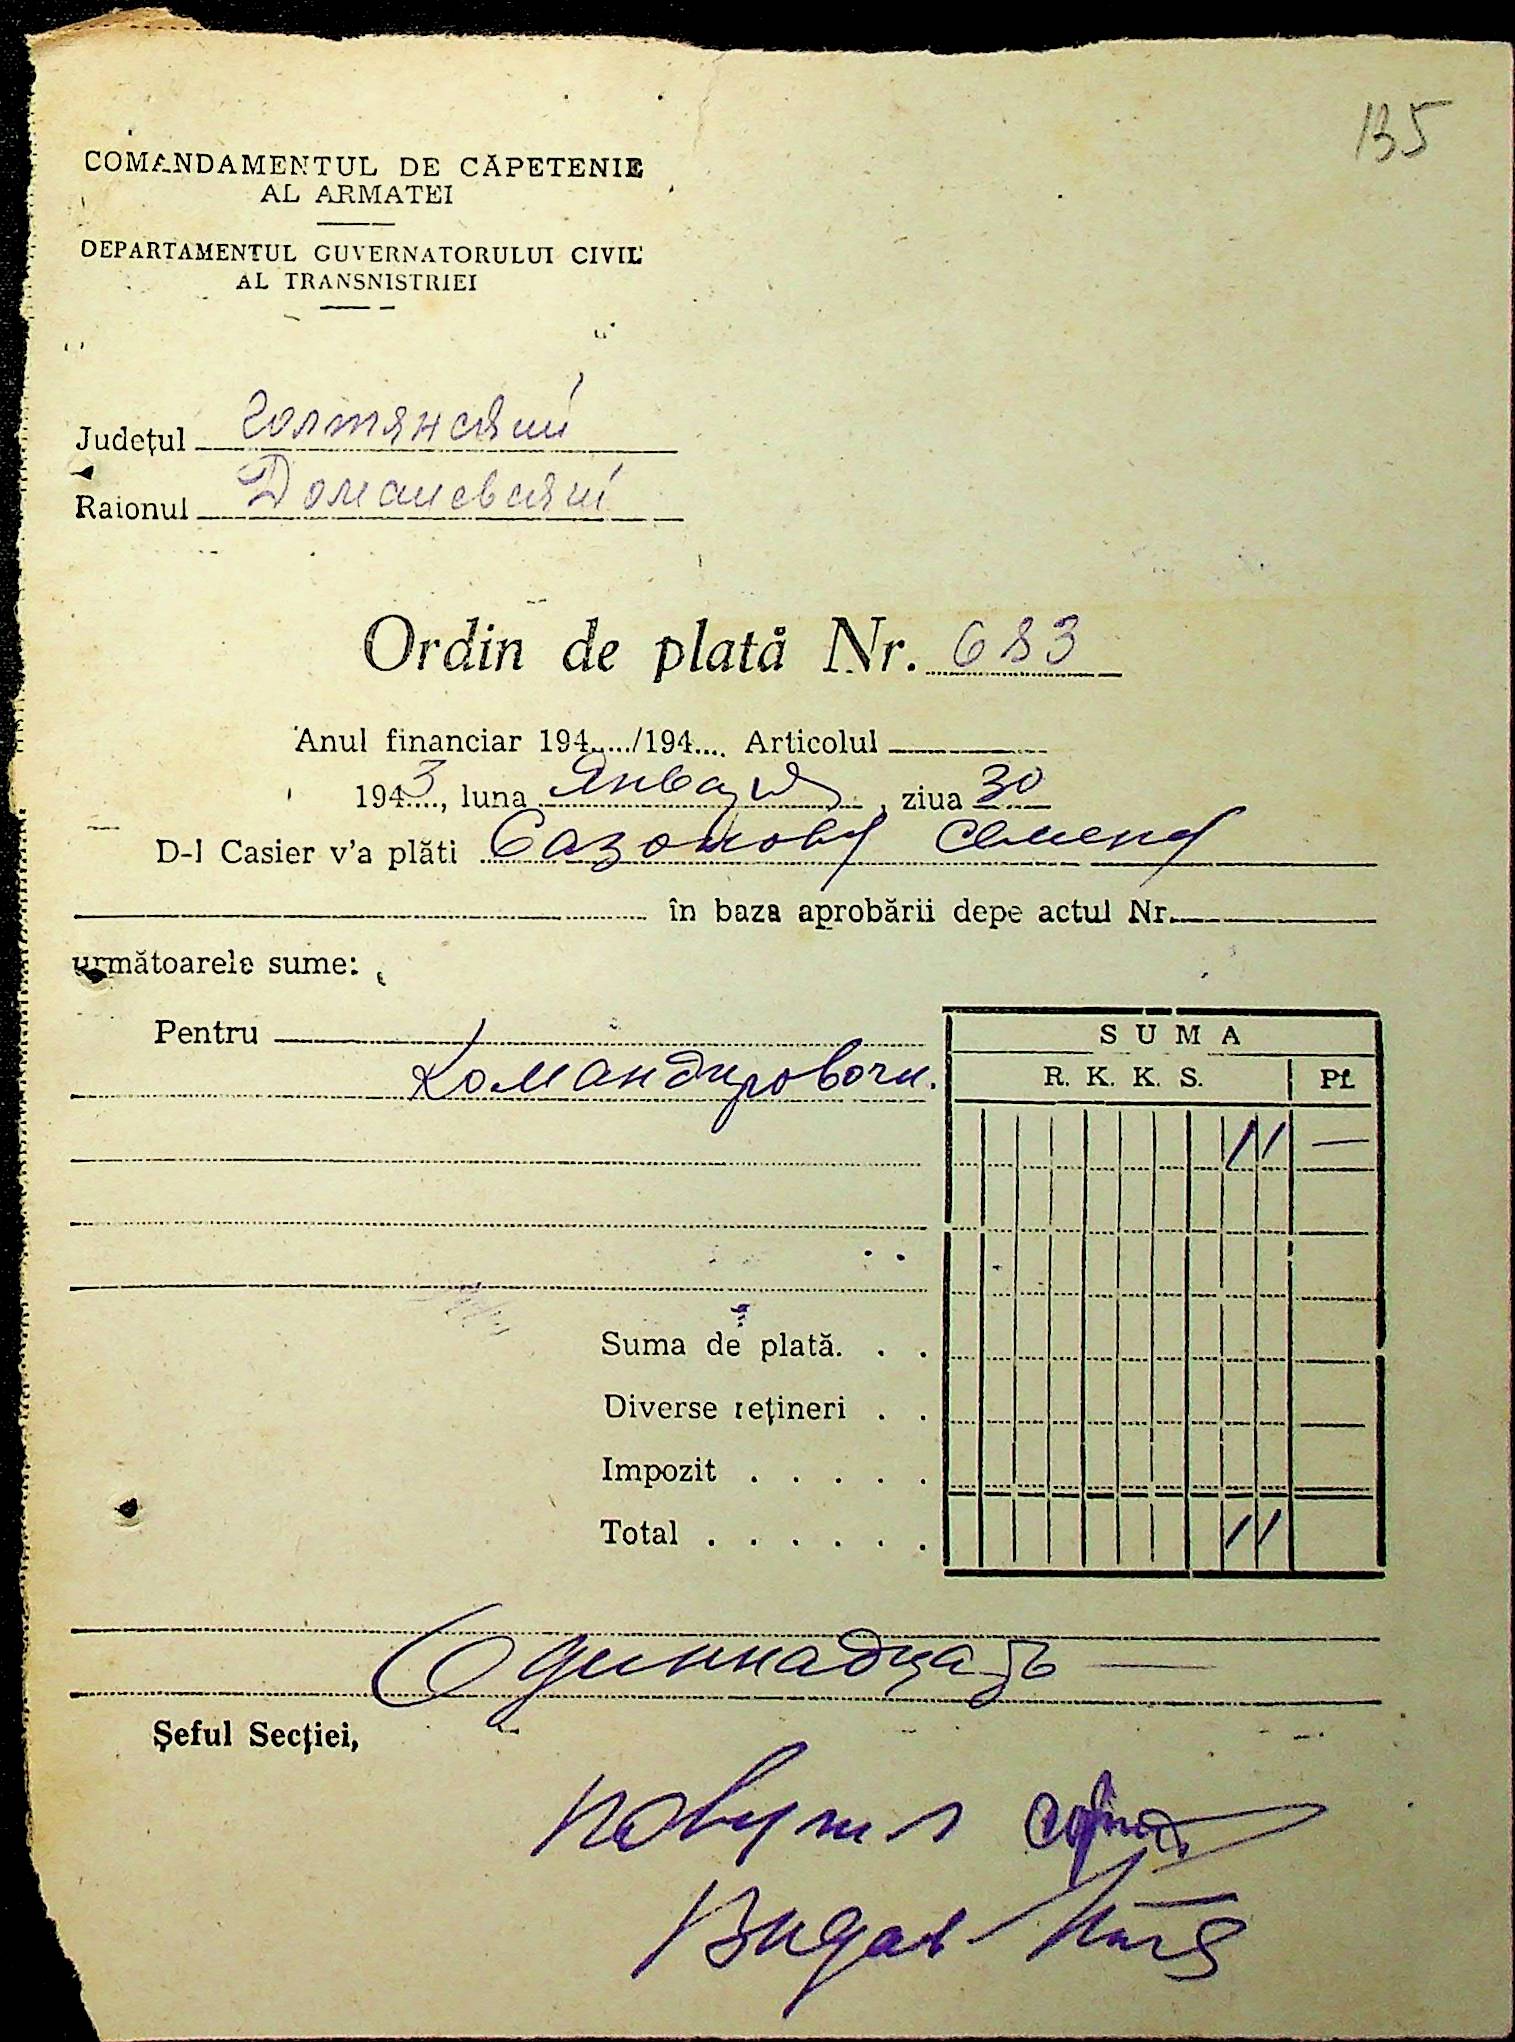 135
COMANDAMENTUL DE CĂPETENIE
AL ARMATEI
DEPARTAMENTUL GUVERNATORULUI CIVIL
AL TRANSNISTRIEI
Județul Голтянский
Raionul Доманевский
Ordin de plată Nr. 683
Anul financiar 194..../194.... Articolul
1943, luna Январь, ziua 30
D-l Casier v'a plăti Сазонову Семену
în baza aprobării depe actul Nr.
următoarele sume:
Pentru
SUMA
Командировочн.
R. K. K. S. Pf.
11 —
Suma de plată. . .
Diverse rețineri . .
Impozit . . . . .
Total . . . . . . 11
Одиннадцать —
Șeful Secției,
Выдал